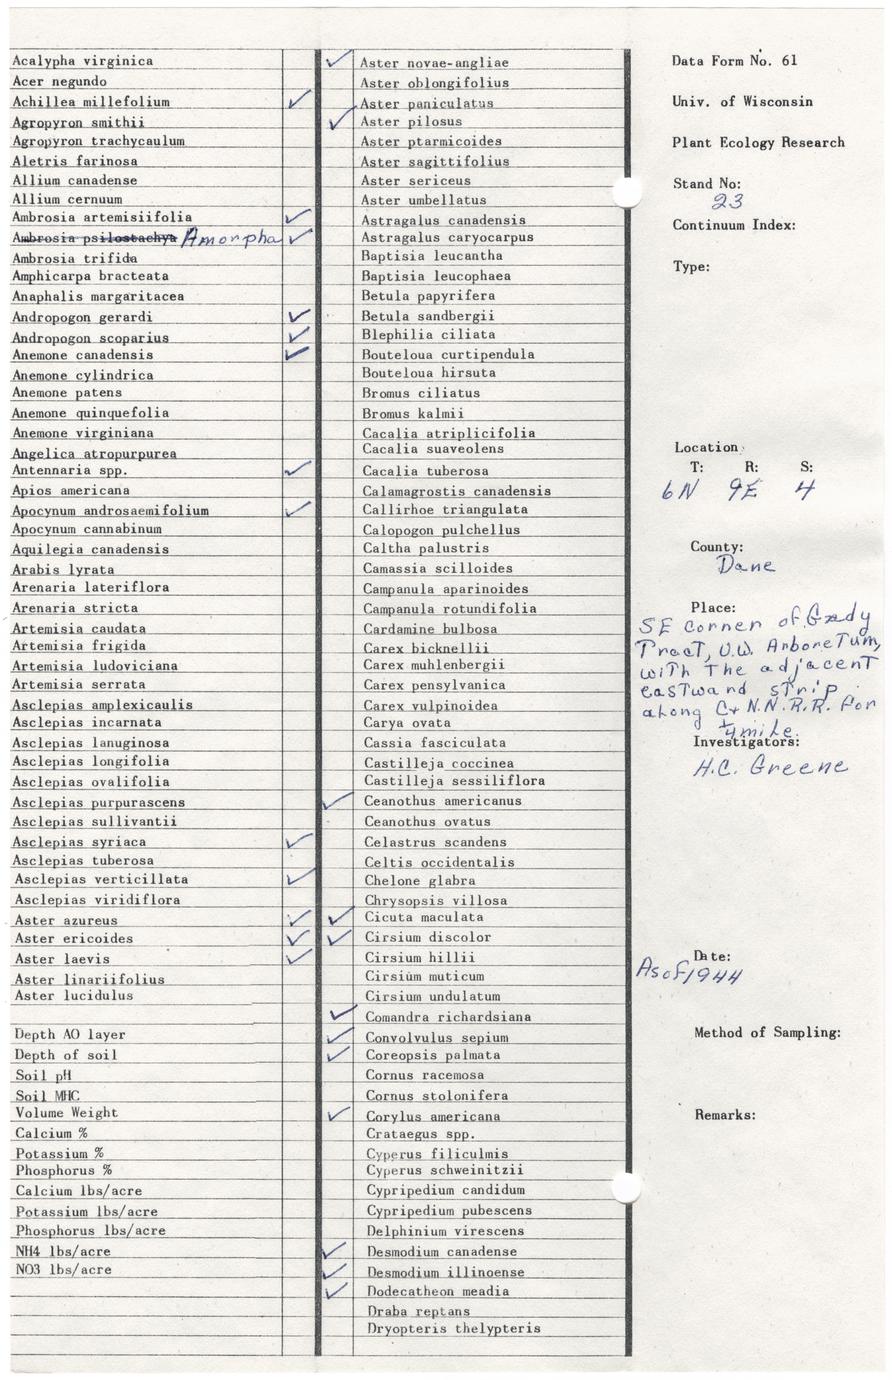 Acalypha virginica
Acer negundo
Achillea millefolium ✓
Agropyron smithii
Agropyron trachycaulum
Aletris farinosa
Allium canadense
Allium cernuum
Ambrosia artemisiifolia ✓
Ambrosia psilostachya Amorpha ✓
Ambrosia trifida
Amphicarpa bracteata
Anaphalis margaritacea
Andropogon gerardi ✓
Andropogon scoparius ✓
Anemone canadensis ✓
Anemone cylindrica
Anemone patens
Anemone quinquefolia
Anemone virginiana
Angelica atropurpurea
Antennaria spp. ✓
Apios americana
Apocynum androsaemifolium ✓
Apocynum cannabinum
Aquilegia canadensis
Arabis lyrata
Arenaria lateriflora
Arenaria stricta
Artemisia caudata
Artemisia frigida
Artemisia ludoviciana
Artemisia serrata
Asclepias amplexicaulis
Asclepias incarnata
Asclepias lanuginosa
Asclepias longifolia
Asclepias ovalifolia
Asclepias purpurascens
Asclepias sullivantii
Asclepias syriaca ✓
Asclepias tuberosa
Asclepias verticillata ✓
Asclepias viridiflora
Aster azureus ✓
Aster ericoides ✓
Aster laevis ✓
Aster linariifolius
Aster lucidulus
Depth AO layer
Depth of soil
Soil pH
Soil MHC
Volume Weight
Calcium %
Potassium %
Phosphorus %
Calcium lbs/acre
Potassium lbs/acre
Phosphorus lbs/acre
NH4 lbs/acre
NO3 lbs/acre
✓ Aster novae-angliae
Aster oblongifolius
Aster paniculatus
✓ Aster pilosus
Aster ptarmicoides
Aster sagittifolius
Aster sericeus
Aster umbellatus
Astragalus canadensis
Astragalus caryocarpus
Baptisia leucantha
Baptisia leucophaea
Betula papyrifera
Betula sandbergii
Blephilia ciliata
Bouteloua curtipendula
Bouteloua hirsuta
Bromus ciliatus
Bromus kalmii
Cacalia atriplicifolia
Cacalia suaveolens
Cacalia tuberosa
Calamagrostis canadensis
Callirhoe triangulata
Calopogon pulchellus
Caltha palustris
Camassia scilloides
Campanula aparinoides
Campanula rotundifolia
Cardamine bulbosa
Carex bicknellii
Carex muhlenbergii
Carex pensylvanica
Carex vulpinoidea
Carya ovata
Cassia fasciculata
Castilleja coccinea
Castilleja sessiliflora
✓ Ceanothus americanus
Ceanothus ovatus
Celastrus scandens
Celtis occidentalis
Chelone glabra
Chrysopsis villosa
✓ Cicuta maculata
✓ Cirsium discolor
Cirsium hillii
Cirsium muticum
Cirsium undulatum
✓ Comandra richardsiana
✓ Convolvulus sepium
✓ Coreopsis palmata
Cornus racemosa
Cornus stolonifera
✓ Corylus americana
Crataegus spp.
Cyperus filiculmis
Cyperus schweinitzii
Cypripedium candidum
Cypripedium pubescens
Delphinium virescens
✓ Desmodium canadense
✓ Desmodium illinoense
✓ Dodecatheon meadia
Draba reptans
Dryopteris thelypteris
Data Form No. 61
Univ. of Wisconsin
Plant Ecology Research
Stand No:
23
Continuum Index:
Type:
Location
T: R: S:
6N 9E 4
County:
Dane
Place:
SE corner of Grady
Tract, U.W. Arboretum,
with the adjacent
eastward strip
along C+N.N.R.R. for
¼ mile.
Investigators:
H.C. Greene
Date:
As of 1944
Method of Sampling:
Remarks: